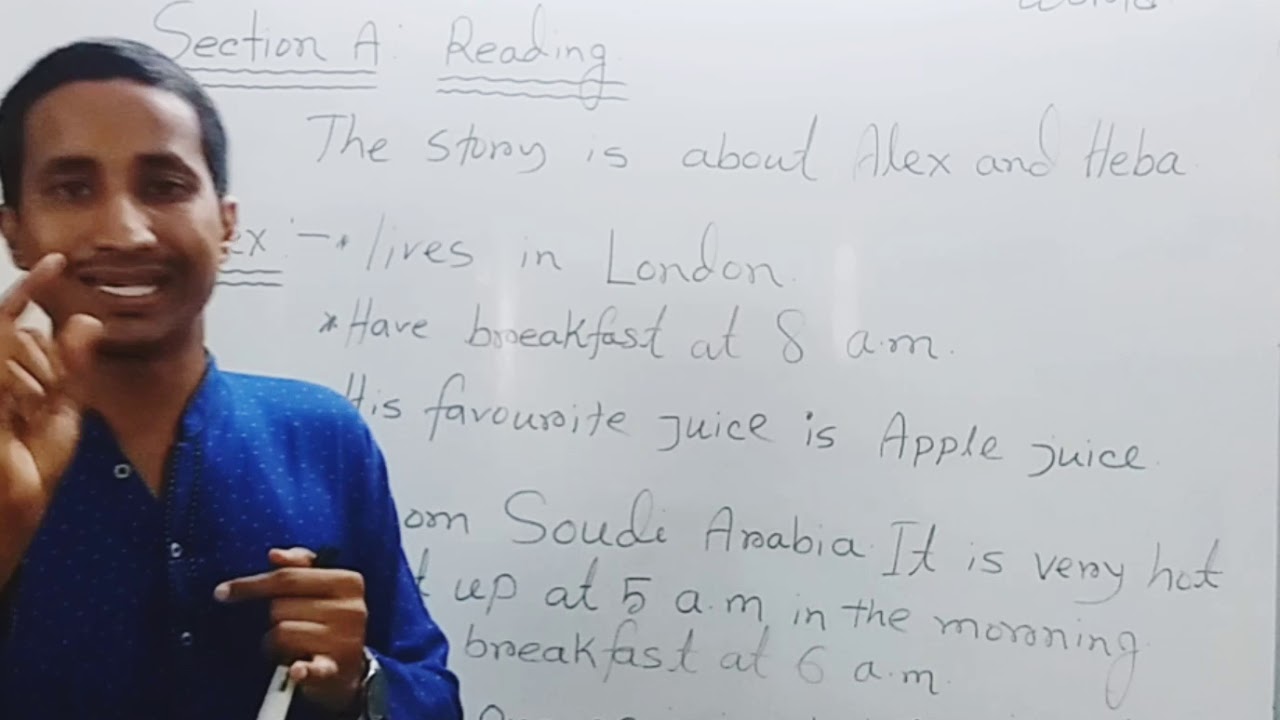 Section A: Reading
The story is about Alex and Heba.
ex :- * lives in London.
* Have breakfast at 8 a.m.
His favourite juice is Apple juice.
om Soudi Arabia. It is very hot
up at 5 a.m in the morning.
breakfast at 6 a.m.